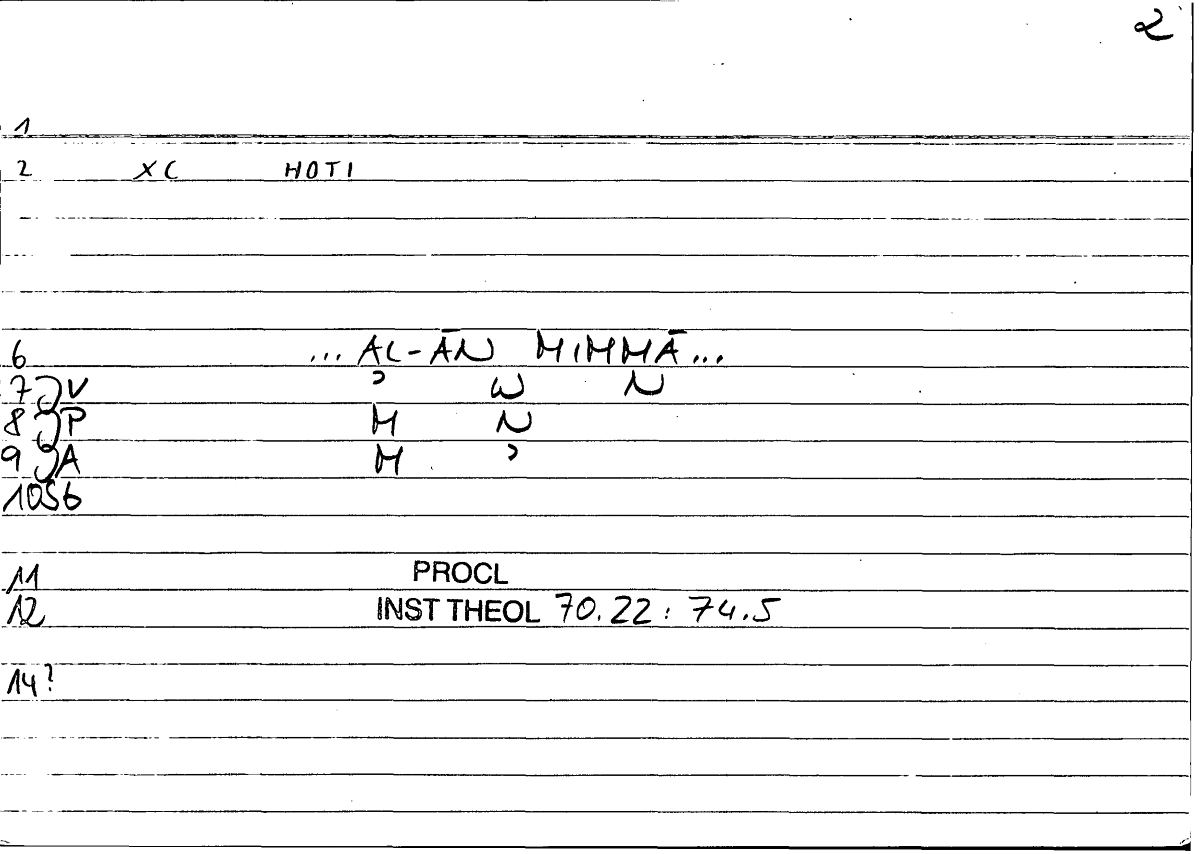 2
1
2 XC HOTI
6 ... AL-ĀN MIMMĀ...
7 JV ʾ W N
8 JP M N
9 JA M ʾ
1056
11 PROCL
12 INST THEOL 70.22 : 74.5
14?